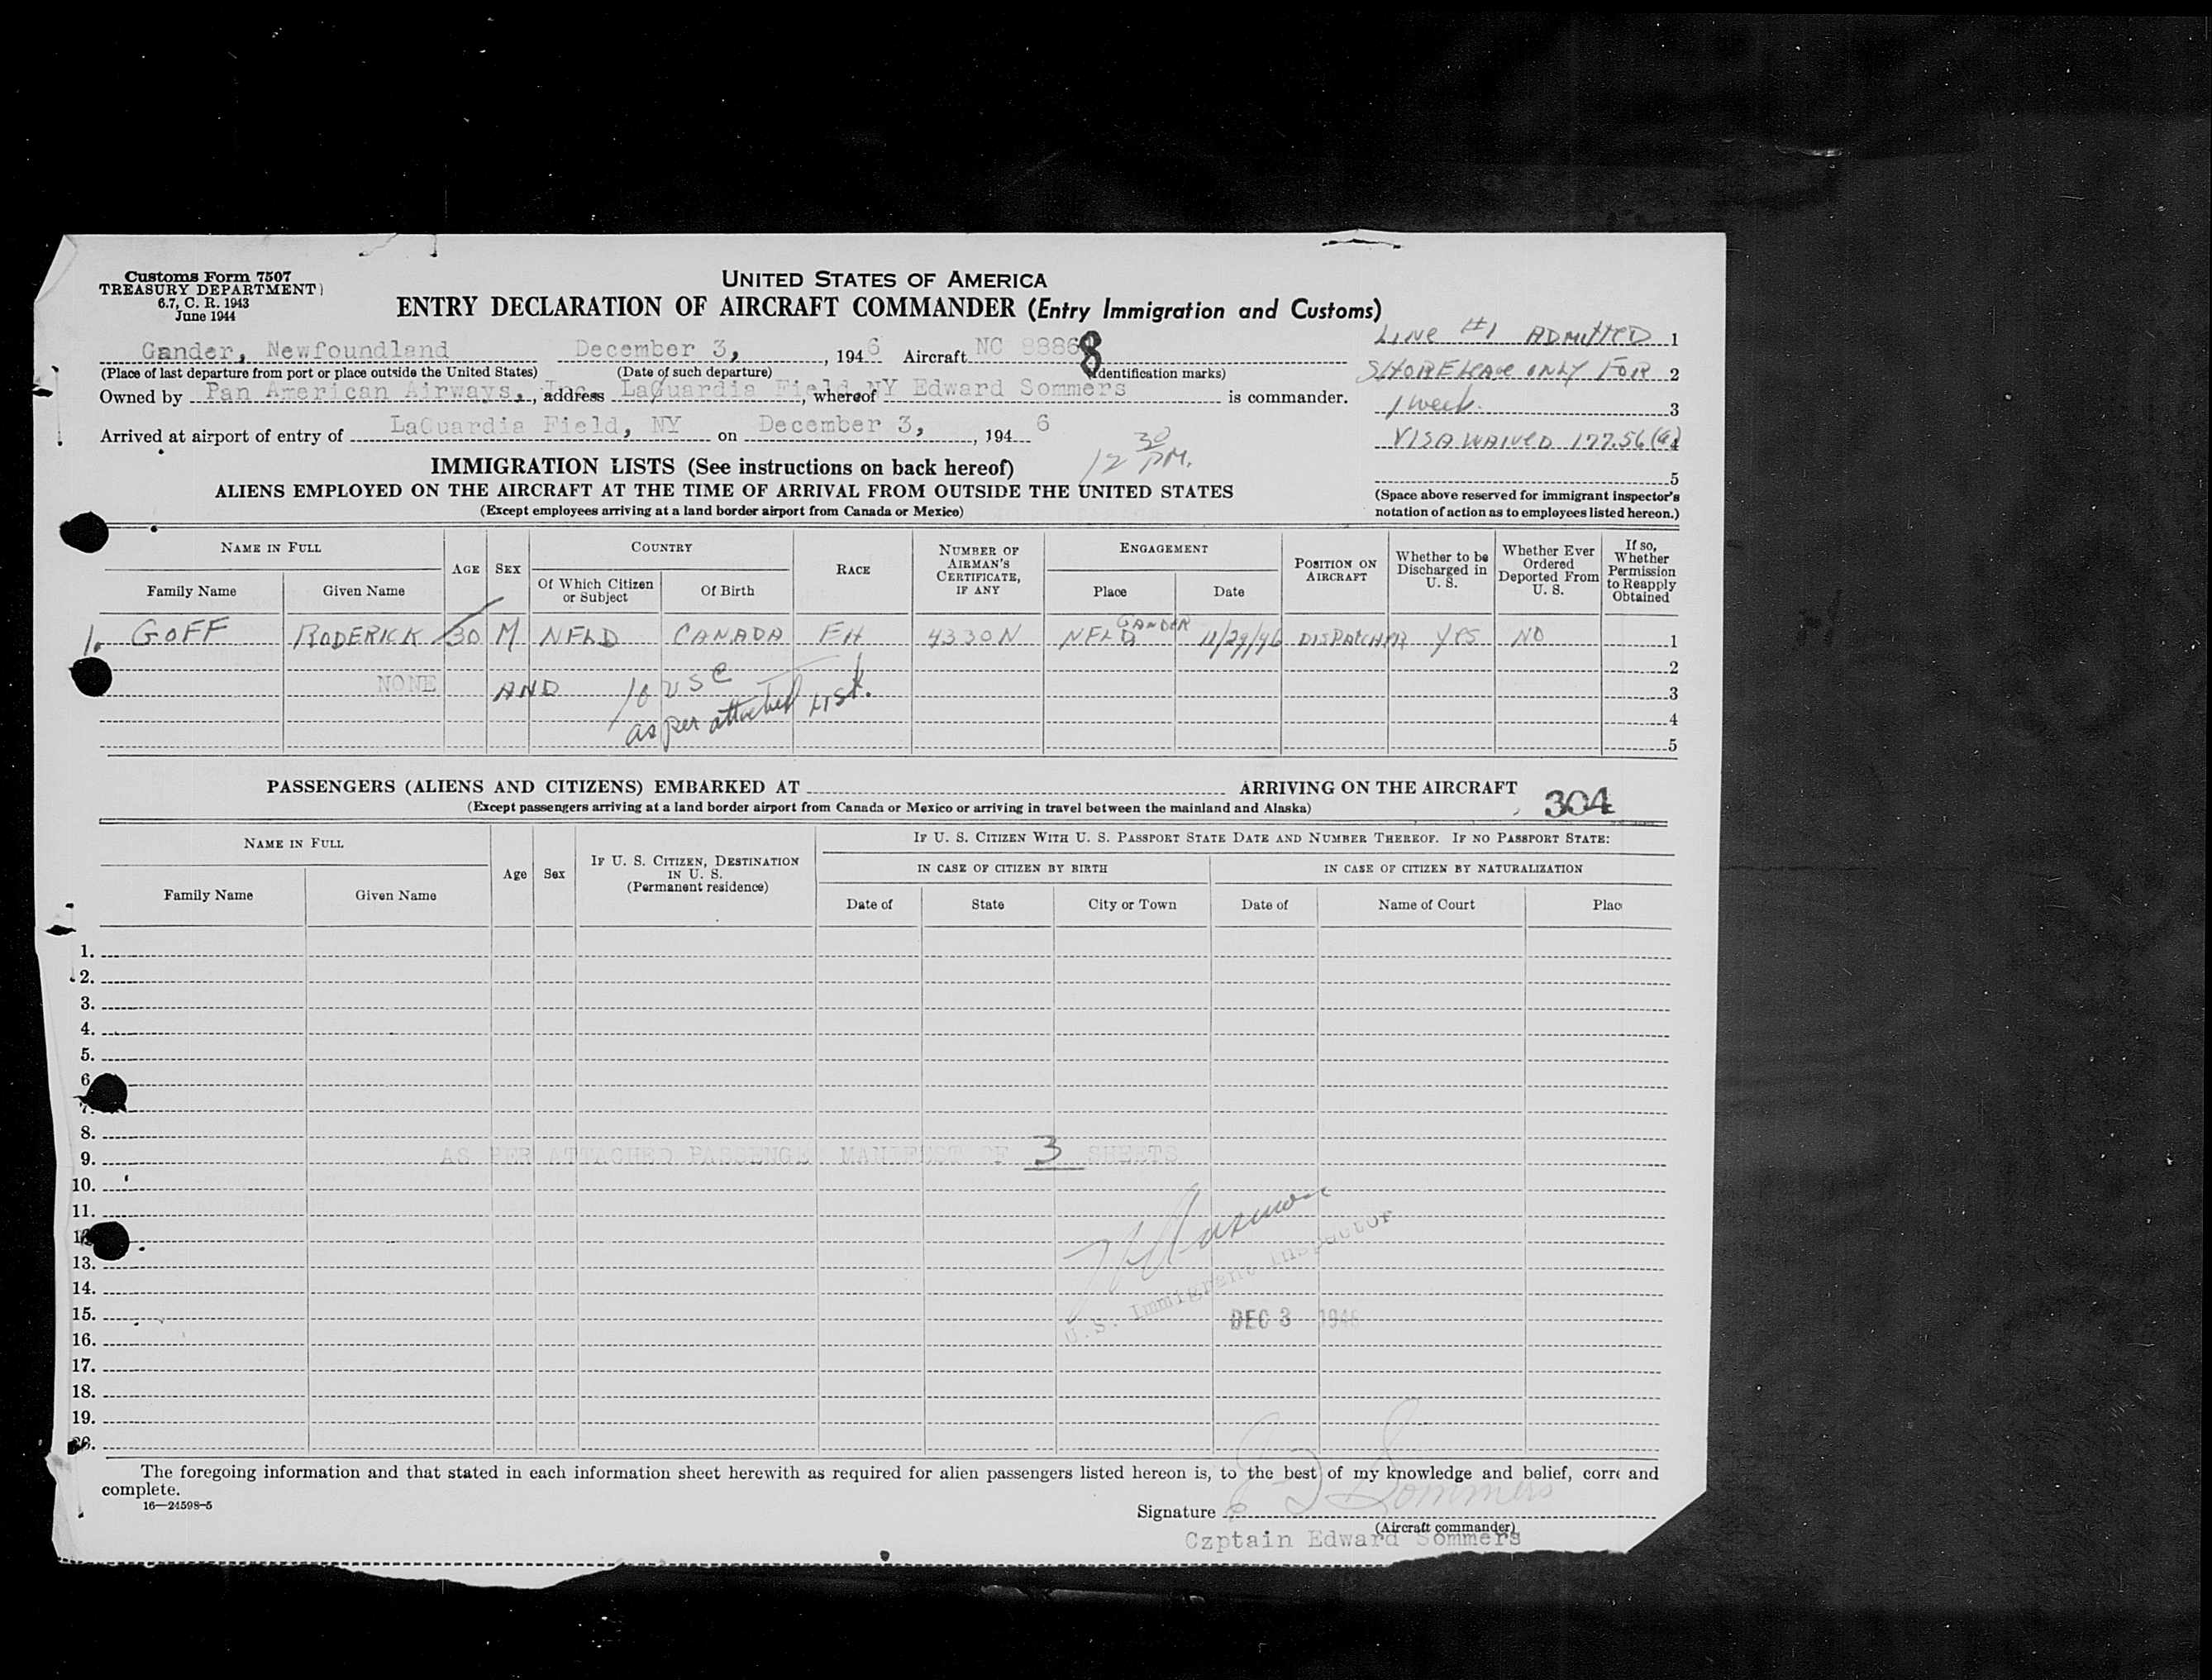 Customs Form 7507
TREASURY DEPARTMENT
6.7, C. R. 1943
June 1944
UNITED STATES OF AMERICA
ENTRY DECLARATION OF AIRCRAFT COMMANDER (Entry Immigration and Customs)
Gander, Newfoundland December 3, , 194 6 Aircraft NC 88868
(Place of last departure from port or place outside the United States) (Date of such departure) (Identification marks)
Owned by Pan American Airways, Inc., address LaGuardia Field NY, whereof Edward Sommers is commander.
Arrived at airport of entry of LaGuardia Field, NY on December 3, , 194 6
12 30 PM.
LINE #1 ADMITTED 1
SHORE LEAVE ONLY FOR 2
1 week. 3
VISA WAIVED 177.56 (G) 4
5
(Space above reserved for immigrant inspector's
notation of action as to employees listed hereon.)
IMMIGRATION LISTS (See instructions on back hereof)
ALIENS EMPLOYED ON THE AIRCRAFT AT THE TIME OF ARRIVAL FROM OUTSIDE THE UNITED STATES
(Except employees arriving at a land border airport from Canada or Mexico)
NAME IN FULL AGE SEX COUNTRY RACE NUMBER OF AIRMAN'S CERTIFICATE, IF ANY ENGAGEMENT POSITION ON AIRCRAFT Whether to be Discharged in U. S. Whether Ever Ordered Deported From U. S. If so, Whether Permission to Reapply Obtained
Family Name Given Name Of Which Citizen or Subject Of Birth Place Date
1. GOFF RODERICK 30 M NFLD CANADA EH 4330N GANDER NFLD 11/29/46 DISPATCHER YES NO 1
2
NONE AND 10 USC 3
as per attached LIST. 4
5
PASSENGERS (ALIENS AND CITIZENS) EMBARKED AT ARRIVING ON THE AIRCRAFT 304
(Except passengers arriving at a land border airport from Canada or Mexico or arriving in travel between the mainland and Alaska)
NAME IN FULL Age Sex IF U. S. CITIZEN, DESTINATION IN U. S. (Permanent residence) IF U. S. CITIZEN WITH U. S. PASSPORT STATE DATE AND NUMBER THEREOF. IF NO PASSPORT STATE:
IN CASE OF CITIZEN BY BIRTH IN CASE OF CITIZEN BY NATURALIZATION
Family Name Given Name Date of State City or Town Date of Name of Court Plac
1.
2.
3.
4.
5.
6
7.
8.
9. AS PER ATTACHED PASSENGE MANIFEST OF 3 SHEETS
10.
11.
13.
14.
15.
16.
17.
18.
19.
20.
U.S. Immigrant Inspector
DEC 3 1946
The foregoing information and that stated in each information sheet herewith as required for alien passengers listed hereon is, to the best of my knowledge and belief, corre and
complete.
16—24598-5
Signature E D Sommers
(Aircraft commander)
Czptain Edward Sommers